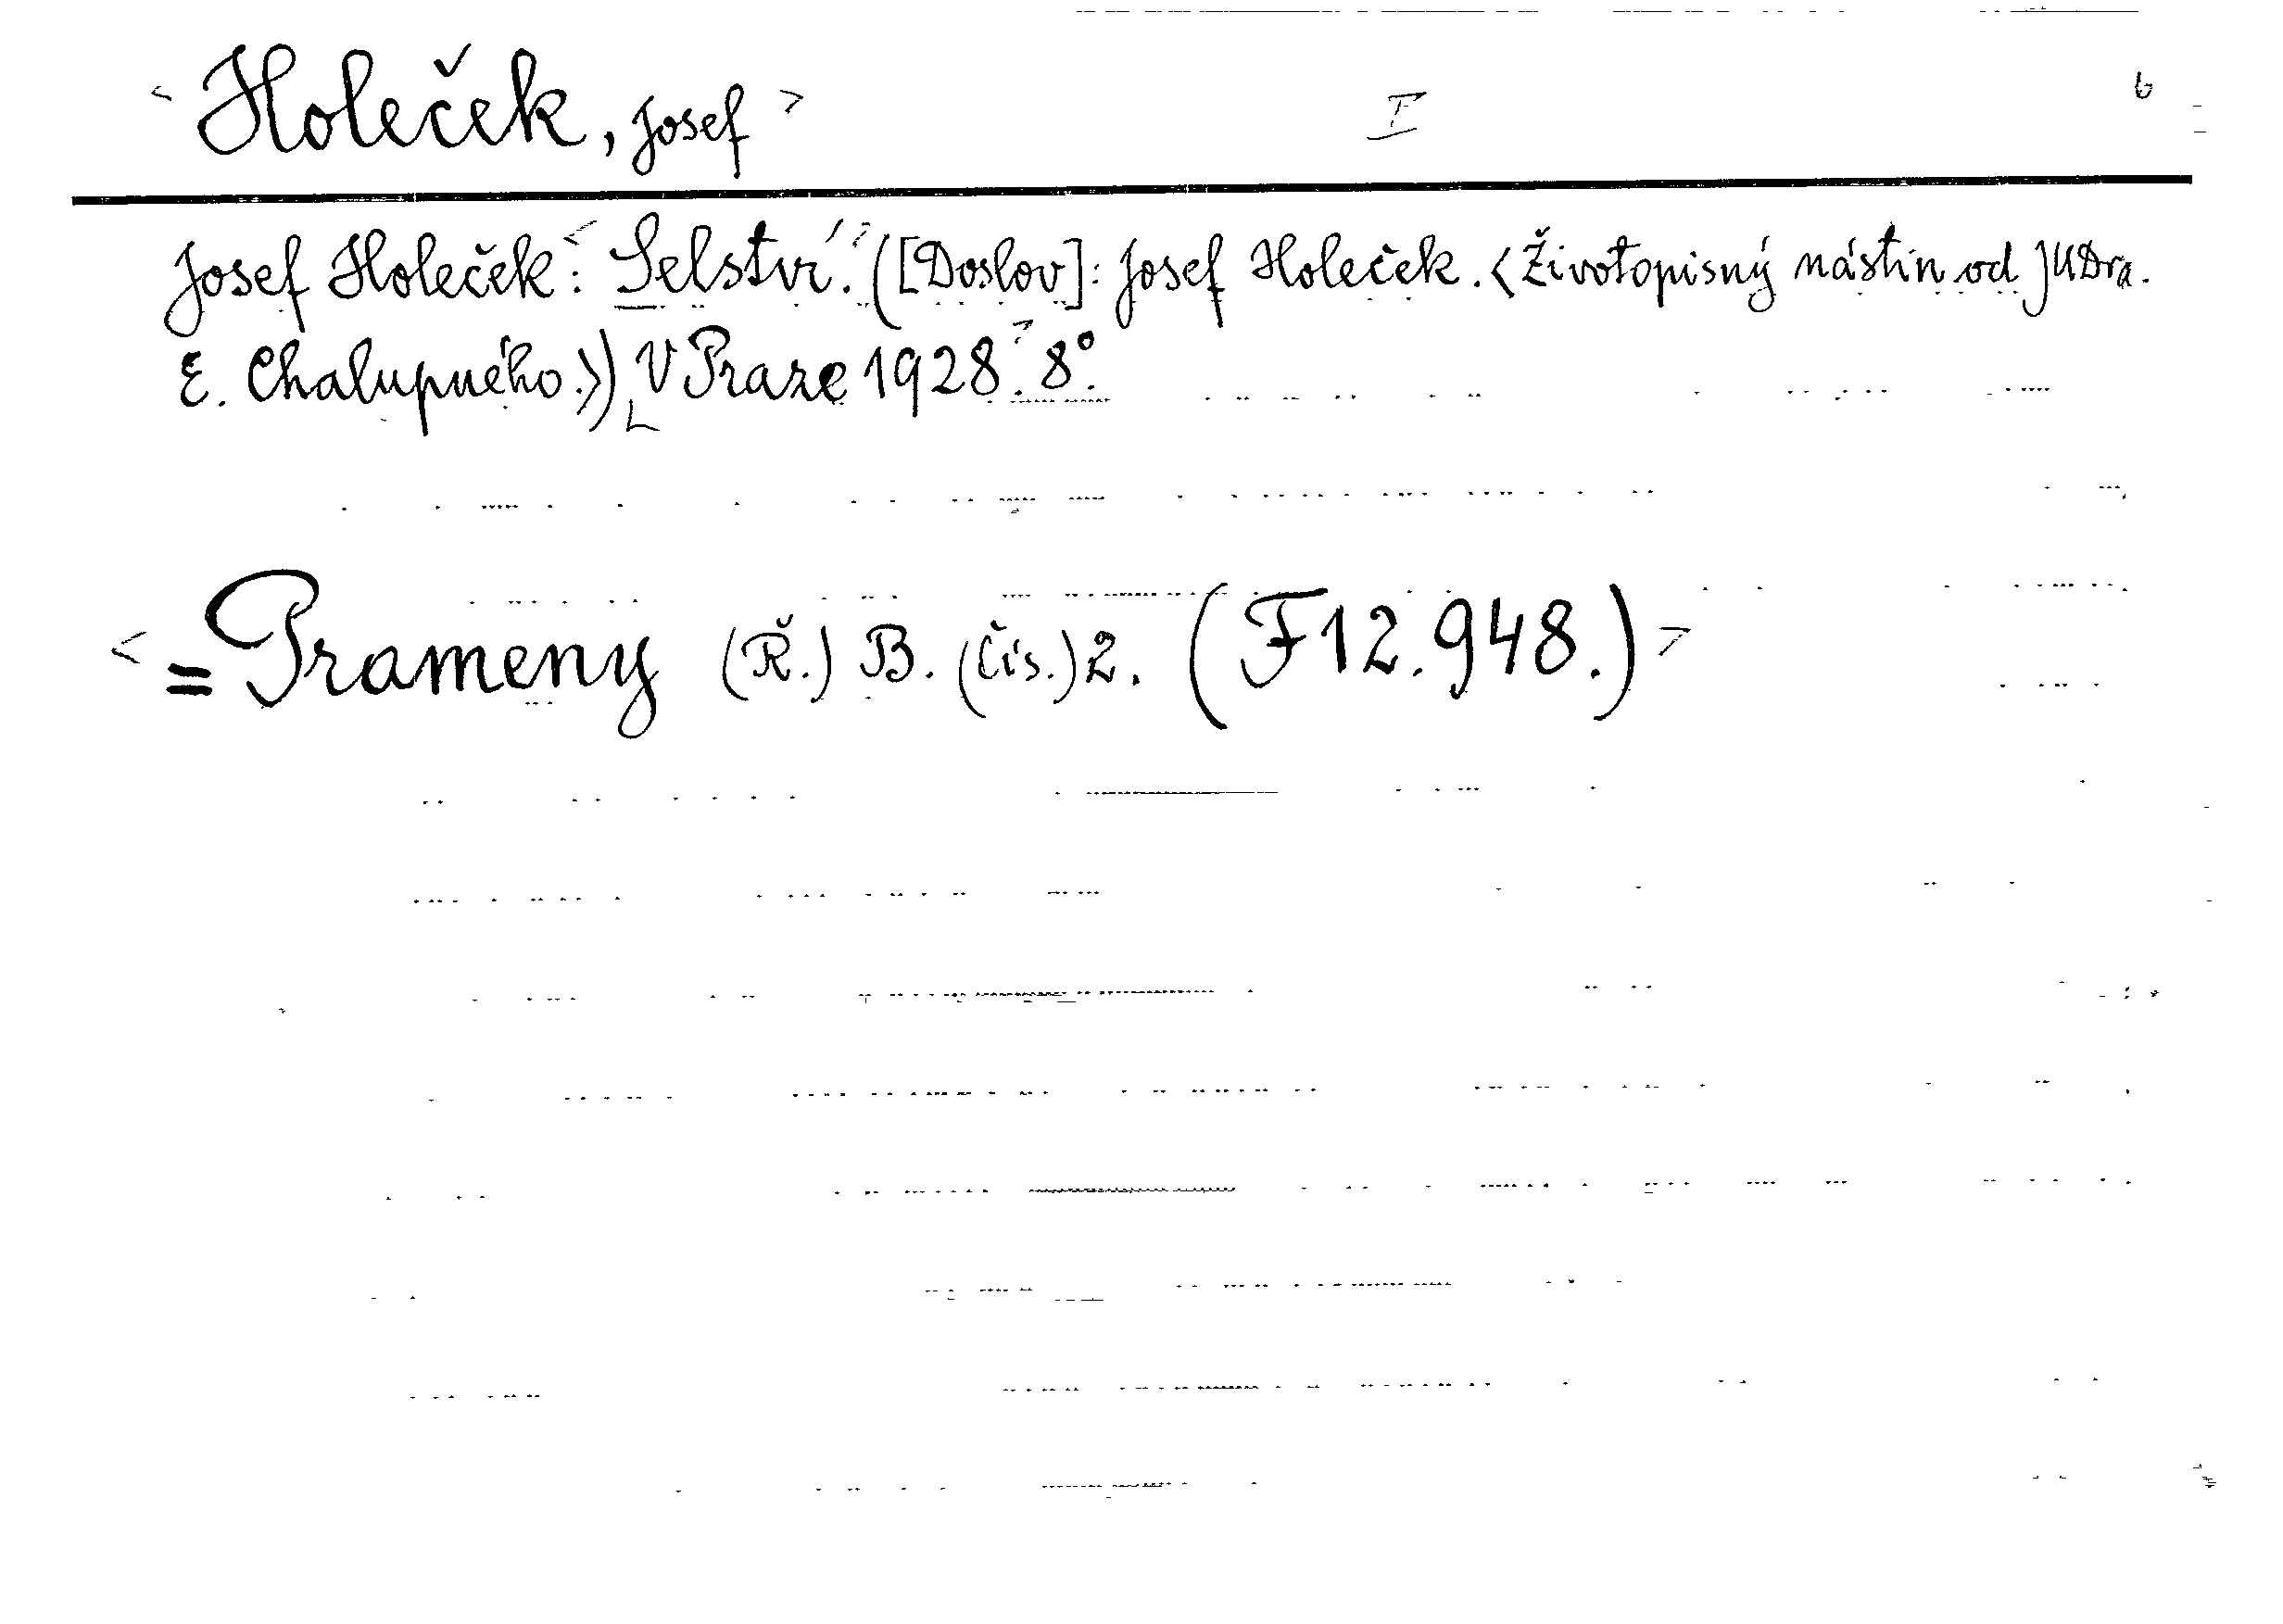 <Holeček, Josef> I 6
Josef Holeček: <Selství.> ([Doslov]: Josef Holeček. <Životopisný nástin od JUDra.
E. Chalupného.>) V Praze 1928. 8°.
<=Prameny (Ř.) B. (Čís.) 2. (F12.948.)>